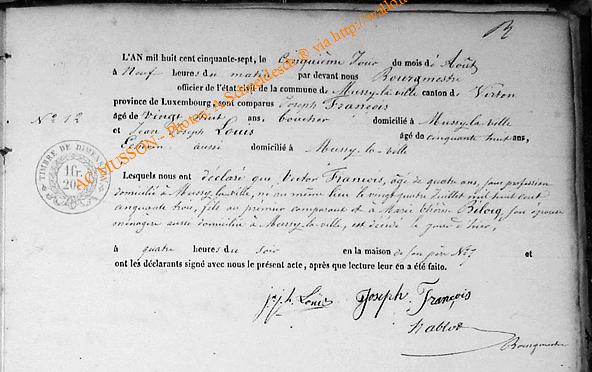 B
L'AN mil huit cent cinquante-sept, le Cinquième Jour du mois de Août
à Neuf heures du matin par devant nous Bourgmestre
officier de l'état civil de la commune de Mussy-la-ville canton de Virton
province de Luxembourg, sont comparus Joseph François
No 12
âgé de vingt huit ans, boucher domicilié à Mussy-la-ville
et Jean Joseph Louis âgé de cinquante huit ans,
aussi domicilié à Mussy-la-ville
Lesquels nous ont déclaré que Victor François, âgé de quatre ans, sans profession
domicilié à Mussy-la-ville, né au même lieu le vingt quatre Juillet mil huit cent
cinquante trois, fils au premier comparant et à Marie Thérèse son épouse
ménagère aussi domiciliée à Mussy-la-ville, est décédé le jour d'hier,
à quatre heures du soir en la maison de son père No 7 et
ont les déclarants signé avec nous le présent acte, après que lecture leur en a été faite.
j. j. Louis Joseph François
Bourgmestre
TIMBRE DE DIMENSION
1fr.
20
AC MUSSON - Photos A. Schleidesck ® via http://wallo